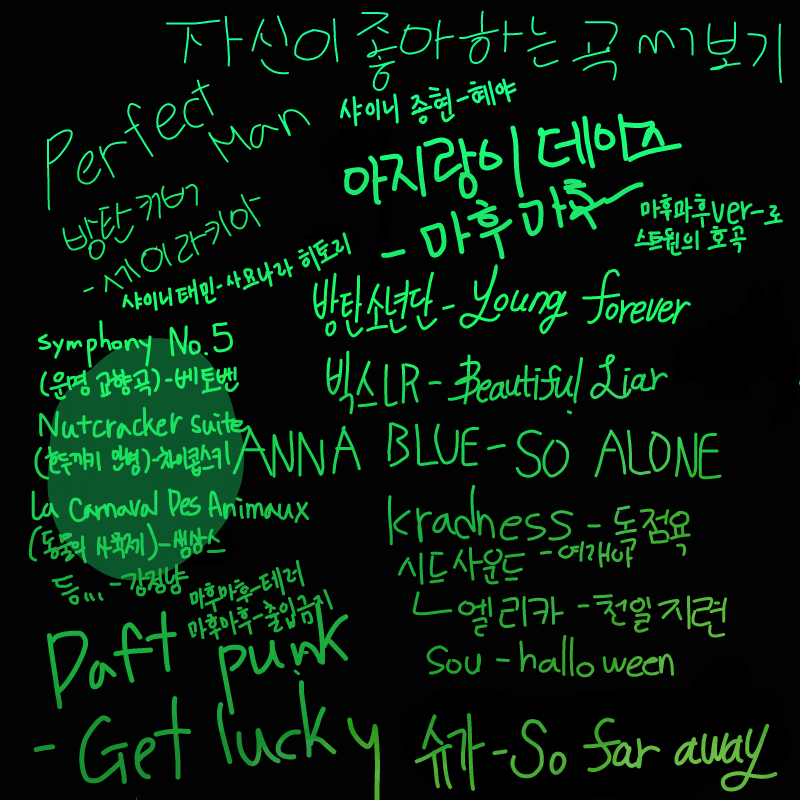 자신이 좋아하는 곡 써보기
Perfect Man
방탄커버
-세이라키아
샤이니 종현-혜야
아지랑이 데이즈
- 마후마후
마후마후ver-로
스트원의 호곡
샤이니태민-사요나라 히토리
방탄소년단-Young forever
Symphony No.5
(운명 교향곡)-베토벤
Nutcracker suite
(호두까기 인형)-차이콥스키
La Carnaval Des Animaux
(동물의 사육제)-생상스
등...-감정냥
빅스LR-Beautiful Liar
ANNA BLUE-SO ALONE
kradness-독점욕
시드사운드-여개야
ㄴ엘리카-천일지련
sou-halloween
마후마후-테러
마후마후-출입금지
Daft punk
-Get lucky
슈가-So far away